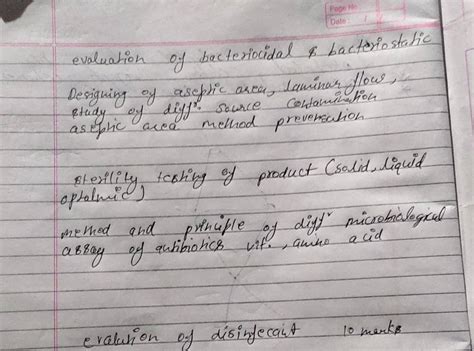 Page No.
Date : 1
evaluation of bacteriocidal & bacteriostatic
Designing of aseptic area, laminar flow,
study of diffr. source contamination
aseptic area method prevensution
sterility testing of product (solid, liquid
optalmic)
method and principle of diffr microbiological
assay of antibiotics vit., amino acid
evalution of disinfecant 10 marks